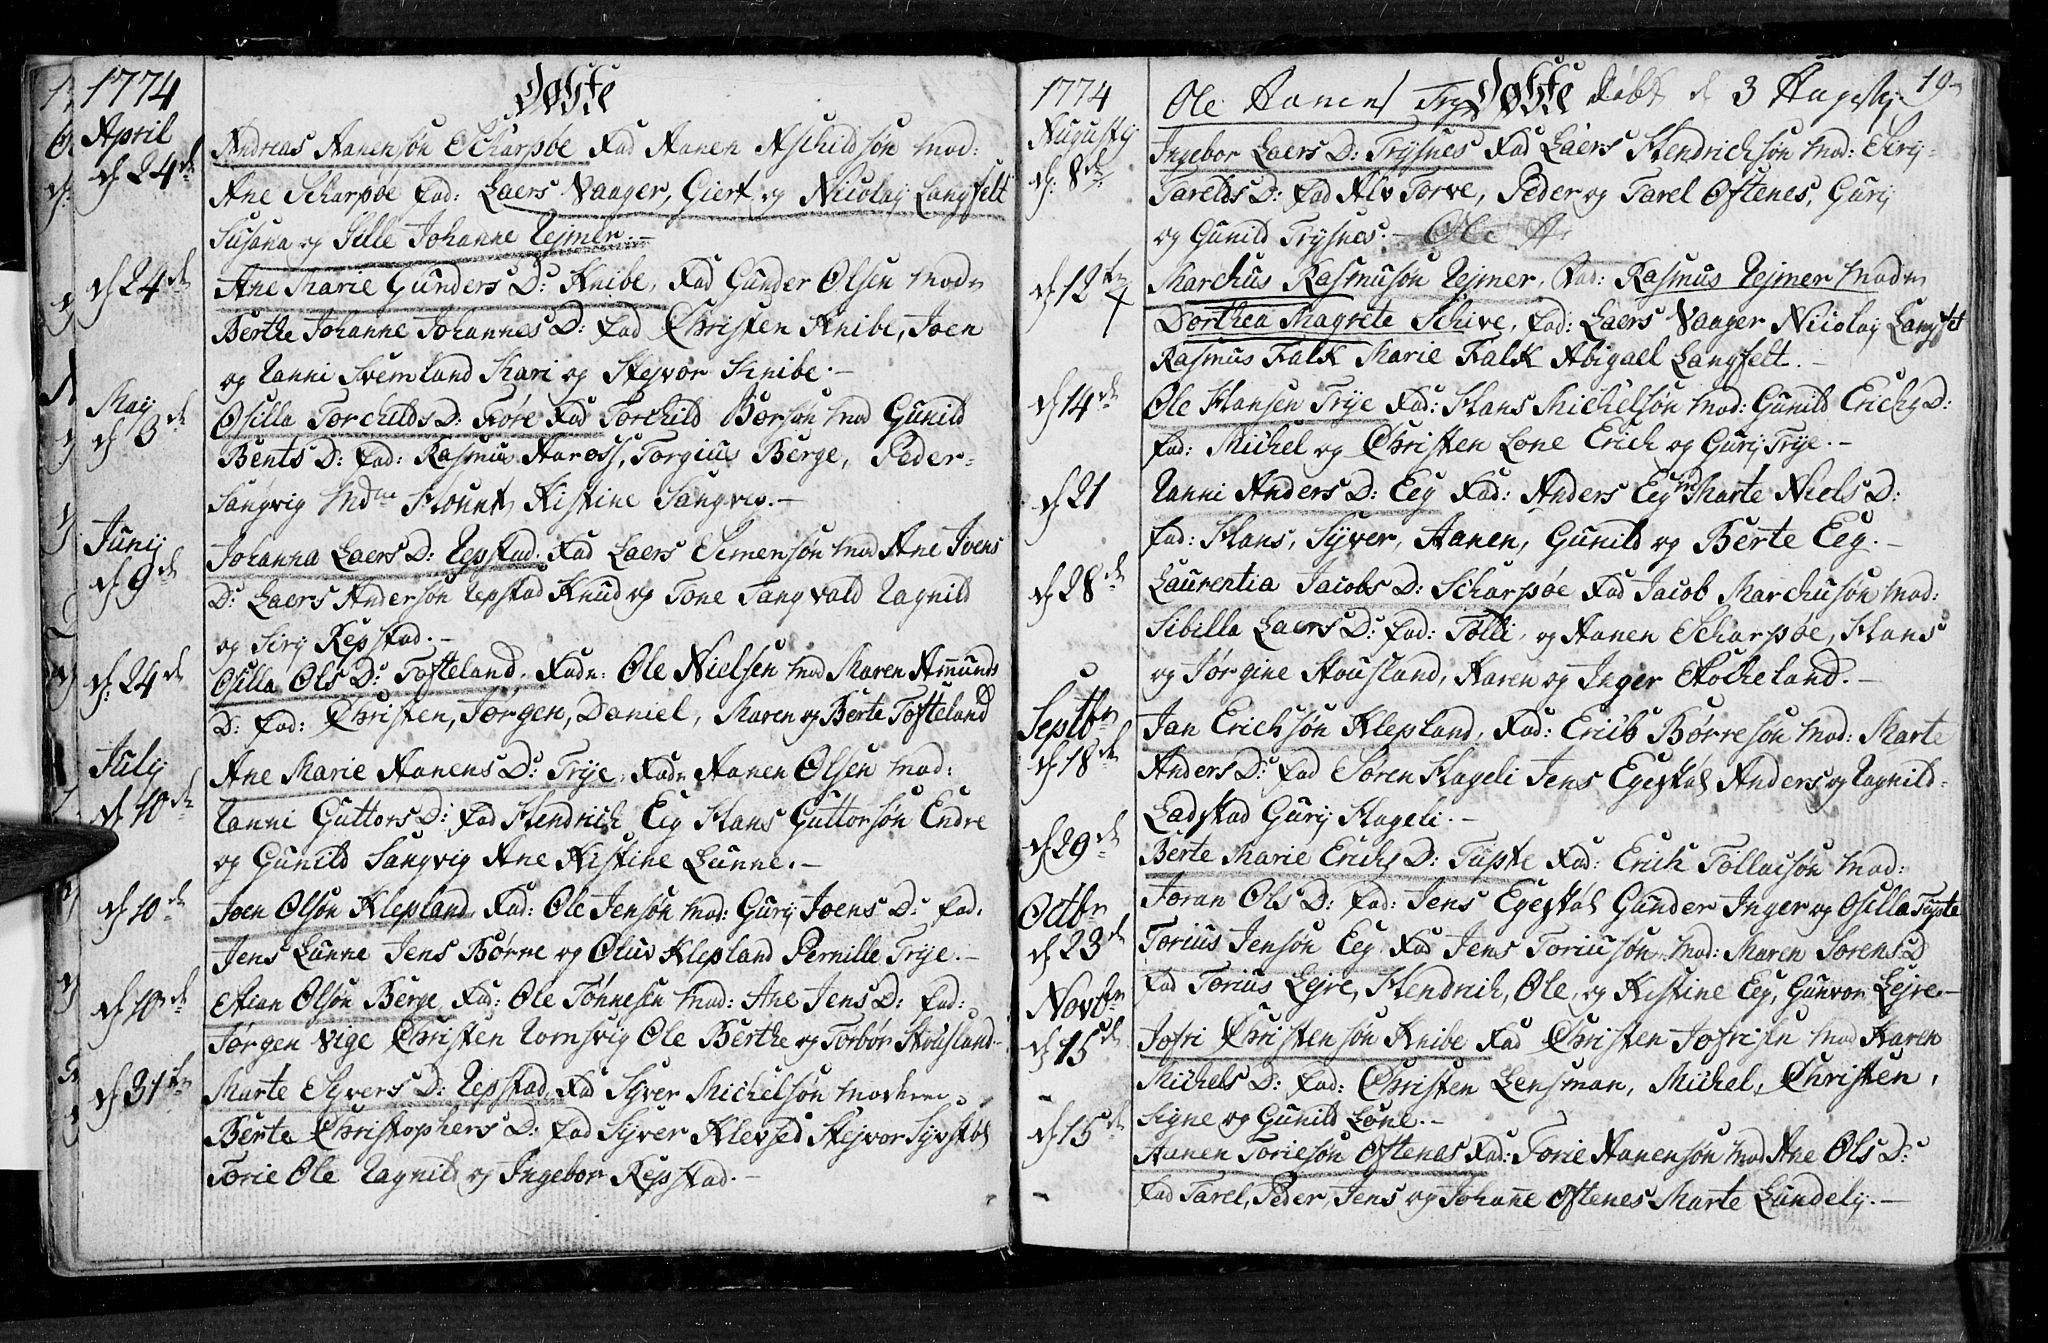 1774
Døbte
April
d 24de
Andreas Aanensøn Scharpøe Fad Aanen Aschildsøn Mod:
Ane Scharpøe Fad: Laers Vaager, Giert og Nicolaj Langfelt
Susana og Sille Johanne Rejmer.-
d 24de
Ane Marie Gunders D: Knibe, Fad Gunder Olsen Mod
Berthe Johanne Johannes D: Fad Christen Knibe, Joen
og Ranni Svemland Kari og Stejvor Knibe.-
May
d 3de
Osilla Torchilds D: Fad Torchild Børson Mod Gunild
Bents D: Fad: Rasmus Aaross, Torgius Berge, Peder
Sangvig Mdm Kistine Sangvig.-
Junij
d 9de
Johanna Laers D: Repstad. Fad Laers Simensøn Mod Ane Ivens
D: Laers Anderson Repstad Knud og Tone Tangvald Ragnild
og Sirj Repstad.-
d: 24de
Osilla Ols D: Tofteland. Fad: Ole Nielsen Mod Maren Amunds
D: Fad: Christen, Jørgen, Daniel, Maren og Berte Tofteland
Julij
d 10de
Ane Marie Aanens D: Trye, Fad Aanen Olsen Mod:
Ranni Guttors D: Fad Hendrich Eeg Hans Guttorsøn Endre
og Gunild Sangvig Ane Kistine Lunne.-
d 10de
Joen Olsøn Klepland Fad: Ole Jensøn Mod: Gurij Joens D: Fad.
Jens Lunne Jens Børne og Oluv Klepland Pernille Trye.-
d 10de
Stian Olsøn Berge Fad: Ole Tønnesen Mod: Ane Jens D: Fad:
Jørgen Vige Christen Romsvig Ole Berthe og Torbør Housland.
d 31te
Marte Syvers D: Repstad, Fad Syver Michelsøn Moderen
Berte Christophers D: Fad Syver Klevsed Stejvor
Torie Ole Ragnild og Ingebor Repstad.-
1774
Ole Aanens Try Døbte døbt d 3 Augustij
19
Augustij
d: 8de
Ingebor Laers D: Trysnes Fad Laers Hendrichsøn Mod: Sirij
Tarelds D: Fad Alv Torve, Peder og Tarel Oftenes, Gurij
og Gunild Trysnes.- Ole A
d 12te
Marchus Rasmuson Rejmer, Fad: Rasmus Rejmer Mod
Dorthea Magrete Schive, Fad: Laers Vaager Nicolaj Langfelt
Rasmus Falk Marie Falk Abigael Langfelt.-
d 14de
Ole Hansen Trye Fad: Hans Michelsøn Mod: Gunild Erichs D:
Fad: Michel og Christen Lone Erich og Gurij Trye.-
d 21
Ranni Anders D: Eeg Fad: Anders Eeg Md Marte Niels D:
Fad: Hans, Syver, Aanen, Gunild og Berte Eeg.-
d 28de
Laurentia Jacobs D: Scharpøe Fad Jacob Marchusøn Mod:
Sibilla Laers D: Fad: Tolli, og Aanen Scharpøe, Hans
og Jørgine Housland, Karen og Inger Stocheland.-
Septbr
d 18de
Jan Erichsøn Klepland, Fad: Erich Børresøn Mod: Marte
Anders D: Fad Søren Hageli Jens Egeskal Anders og Ragnild
Ladstad Gurij Hageli.-
d 29de
Berte Marie Erichs D: Tupte Fad: Erich Tollacsøn Mod:
Joran Ols D: Fad: Jens Egeskal Gunder Inger og Osilla Tupte
Octbr
d 23de
Torius Jensøn Eeg Fad Jens Toriusøn Mod: Maren Sørens D
Fad Torius Lejre, Hendrich, Ole, og Kistine Eeg, Gunvor Lejre.-
Novbr
d 15de
Jofri Christensøn Knibe Fad Christen Jofrisen Mod Karen
Michels D: Fad: Christen Lensman, Michel, Christen,
Signe og Gunild Lone.-
d 15de
Aanen Toriesøn Oftenes Fad: Torie Aanensøn Mod Ane Ols D:
Fad Tarel, Peder, Jens og Johanne Oftenes Marte Lundelij.-